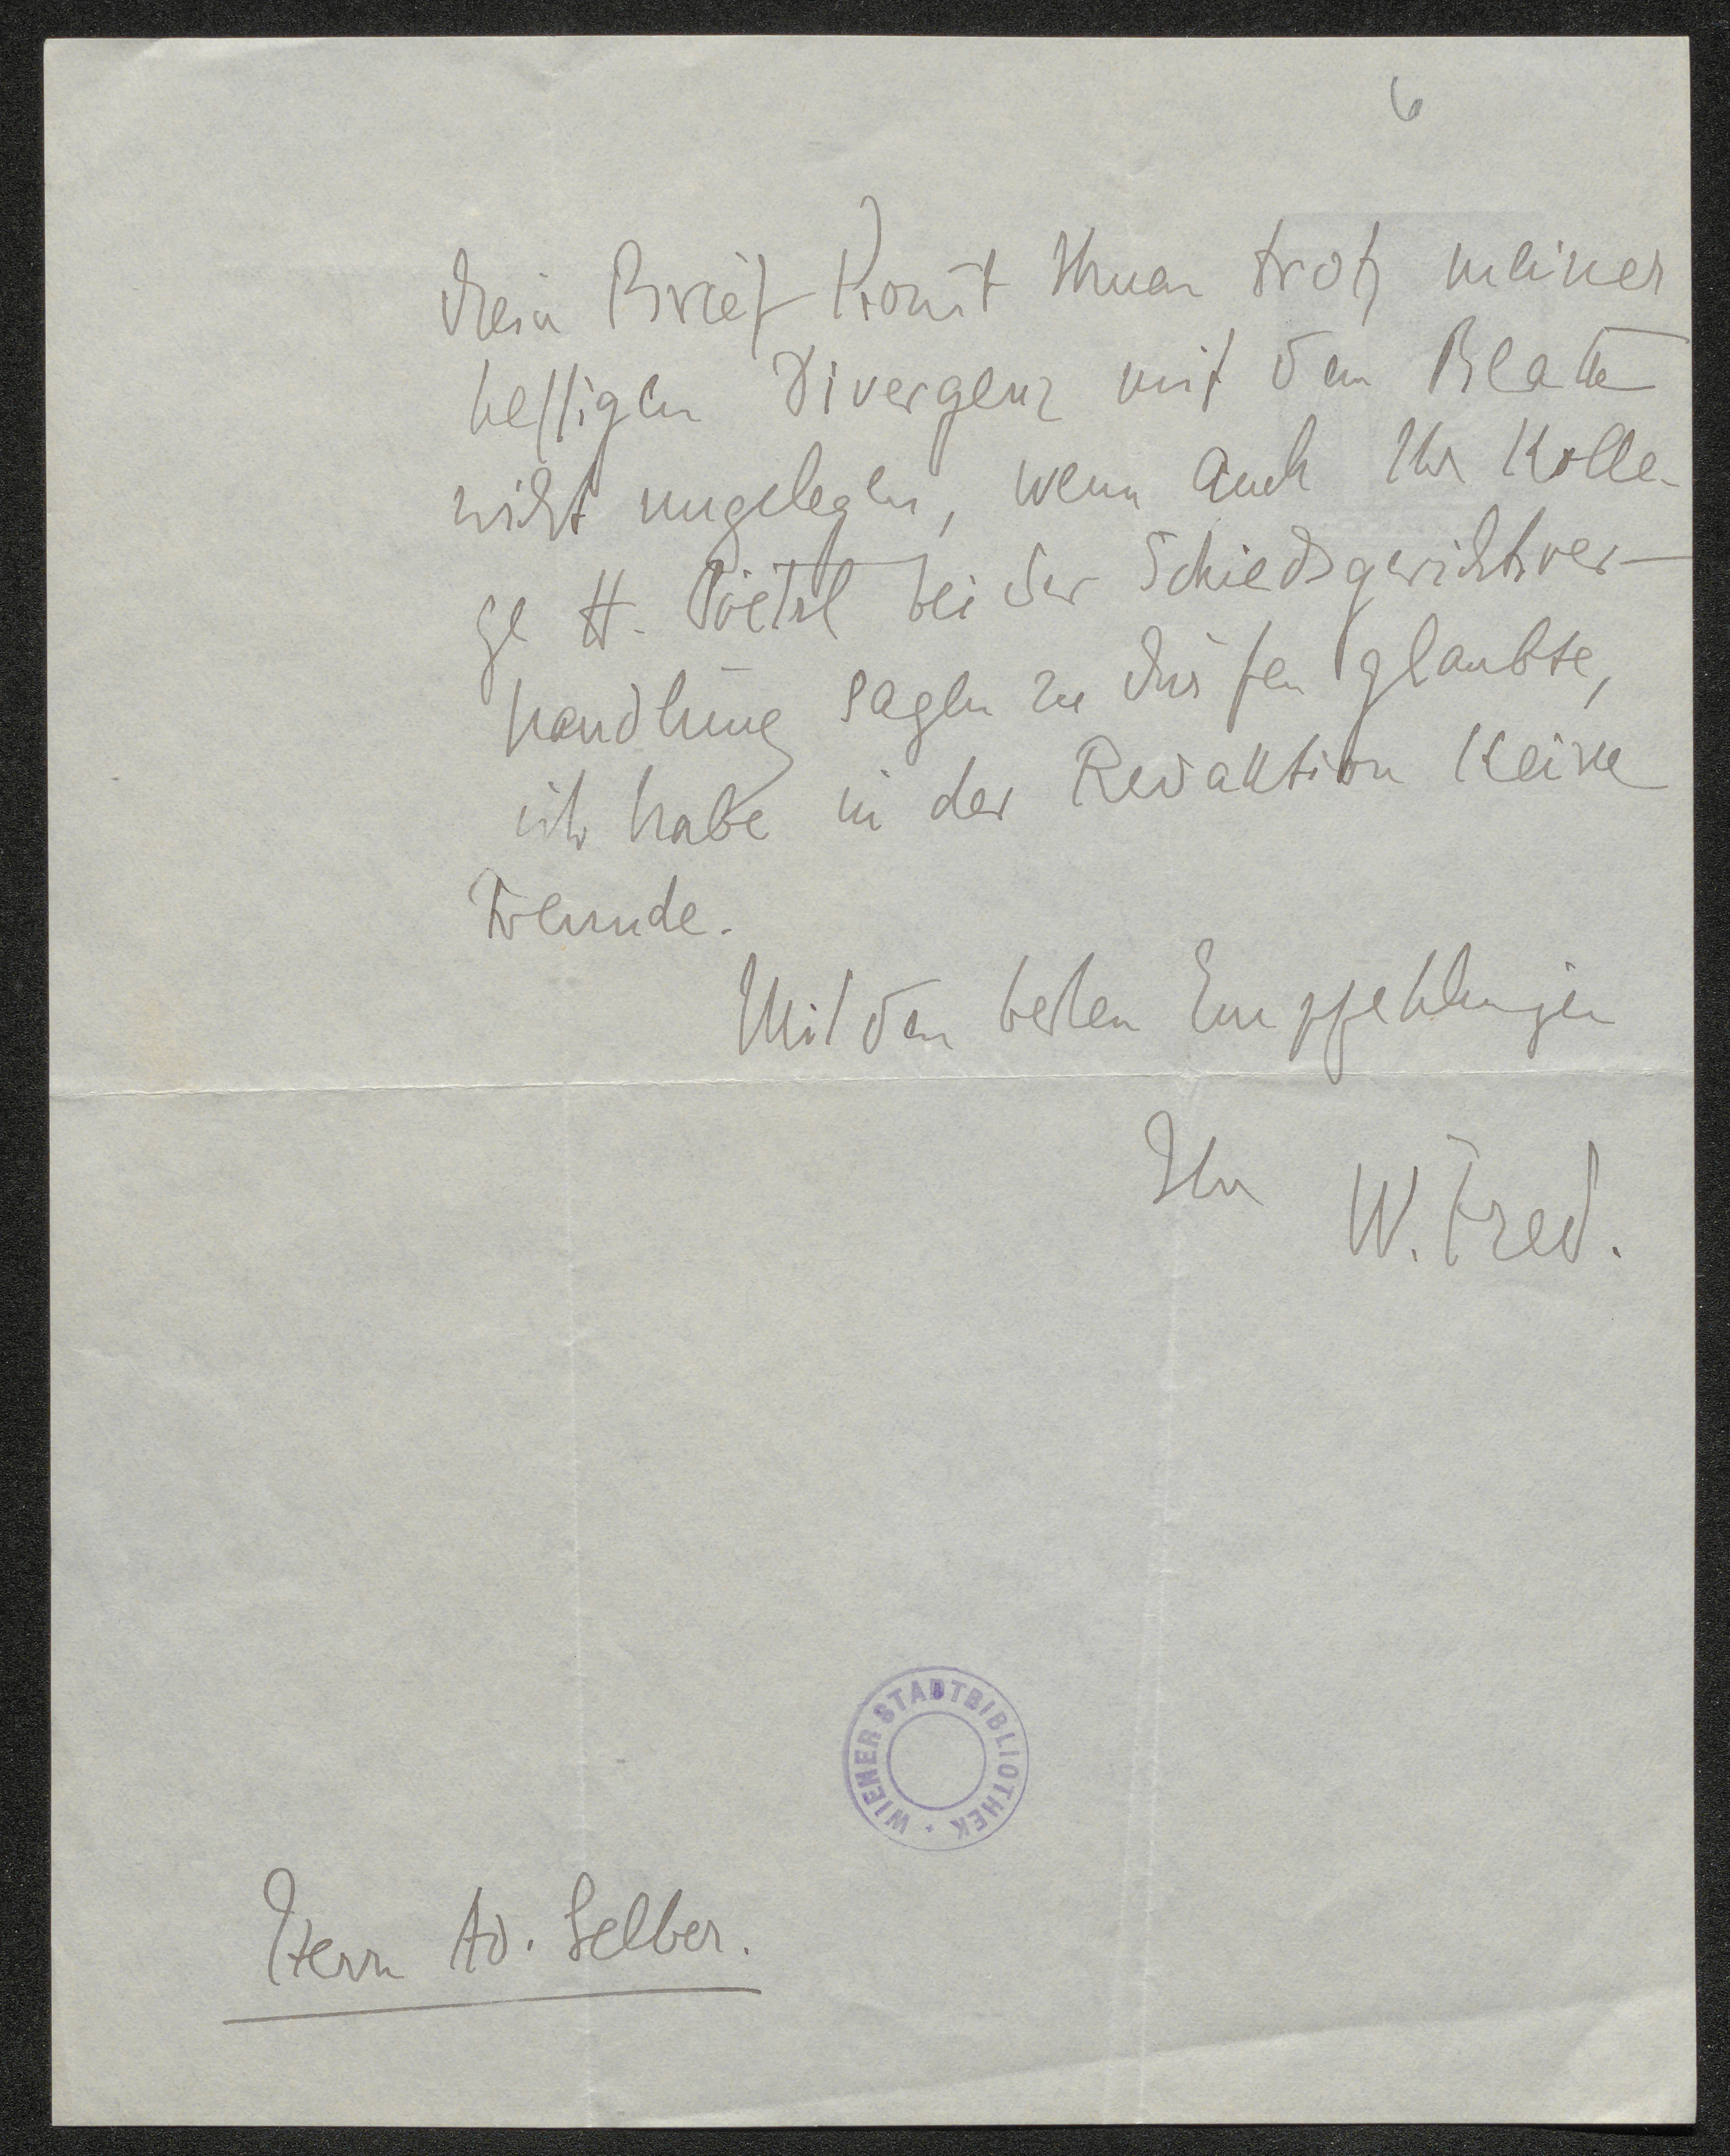 6
Mein Brief kom̄t Ihnen trotz meiner
heftigen Divergenz mit dem Blatte
nicht ungelegen, wenn auch Ihr Kolle-
ge H. Poetzl bei der Schiedsgerichtsver-
handlung sagen zu dürfen glaubte,
ich habe in der Redaktion keine
Freunde.
Mit den besten Empfehlungen
Ihr W. Fred.
WIENER STADTBIBLIOTHEK
Herrn Ad. Gelber.